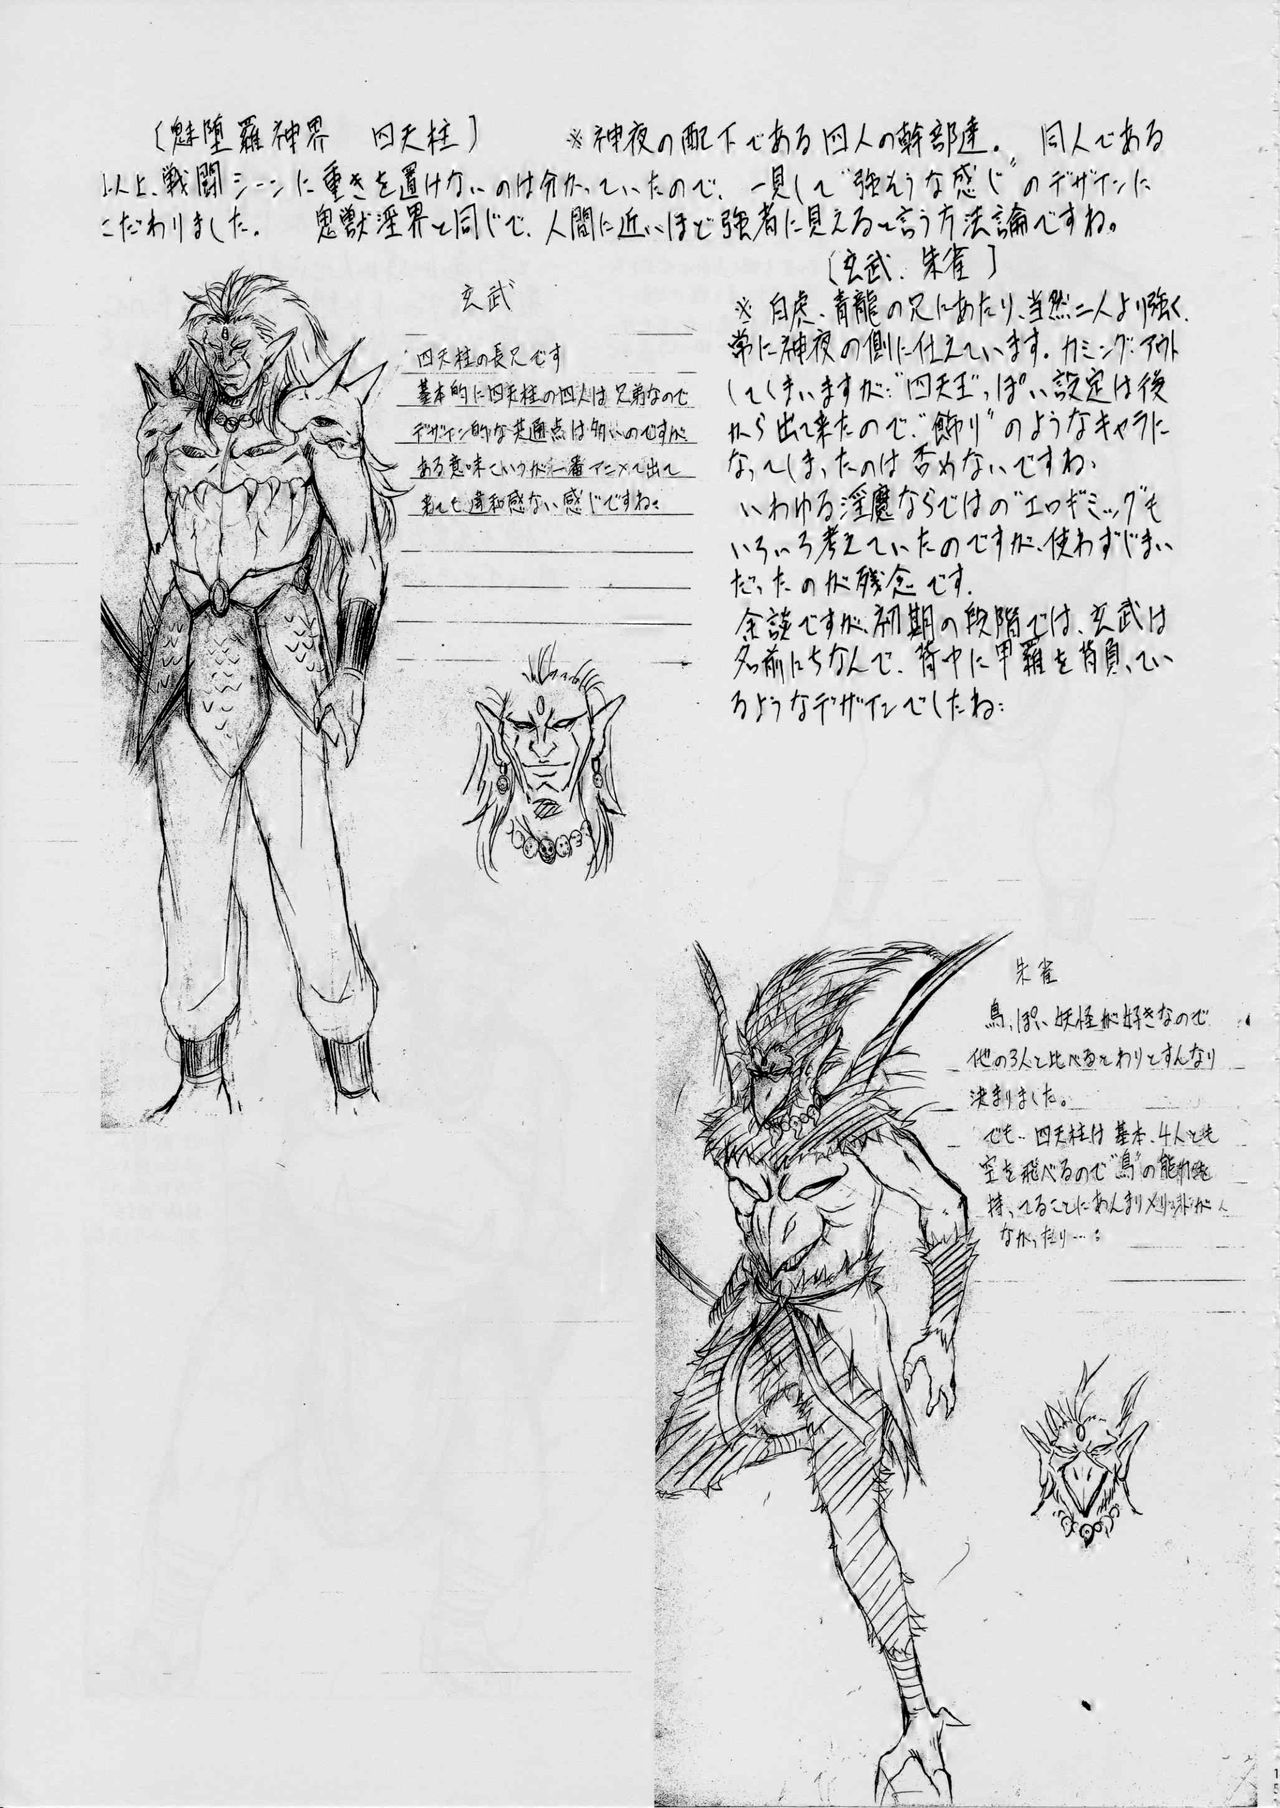 〔魅堕羅神界　四天柱〕　※神夜の配下である四人の幹部達。　同人である
以上、戦闘シーンに重きを置けないのは分かっていたので、一見して“強そうな感じ”のデザインに
こだわりました。　鬼獣淫界と同じで、人間に近いほど強者に見えると言う方法論ですね。
〔玄武、朱雀〕
※白虎、青龍の兄にあたり、当然二人より強く、
常に神夜の側に仕えています。カミングアウト
してしまいますが、“四天王”っぽい設定は後
から出て来たので、“飾り”のようなキャラに
なってしまったのは否めないですね。
いわゆる淫魔ならではの“エロギミック”も
いろいろ考えていたのですが、使わずじまい
だったのが残念です。
余談ですが、初期の段階では、玄武は
名前にちなんで、背中に甲羅を背負ってい
るようなデザインでしたね。
玄武
四天柱の長兄です
基本的に四天柱の四人は兄弟なので
デザイン的な共通点は多いのですが
ある意味こいつが一番アニメで出て
来ても違和感ない感じですね。
朱雀
鳥っぽい妖怪が好きなので
他の3人と比べるとわりとすんなり
決まりました。
でも…四天柱は基本、4人とも
空を飛べるので“鳥”の能力を
持ってることにあんまりメリットが
なかったり…。
15